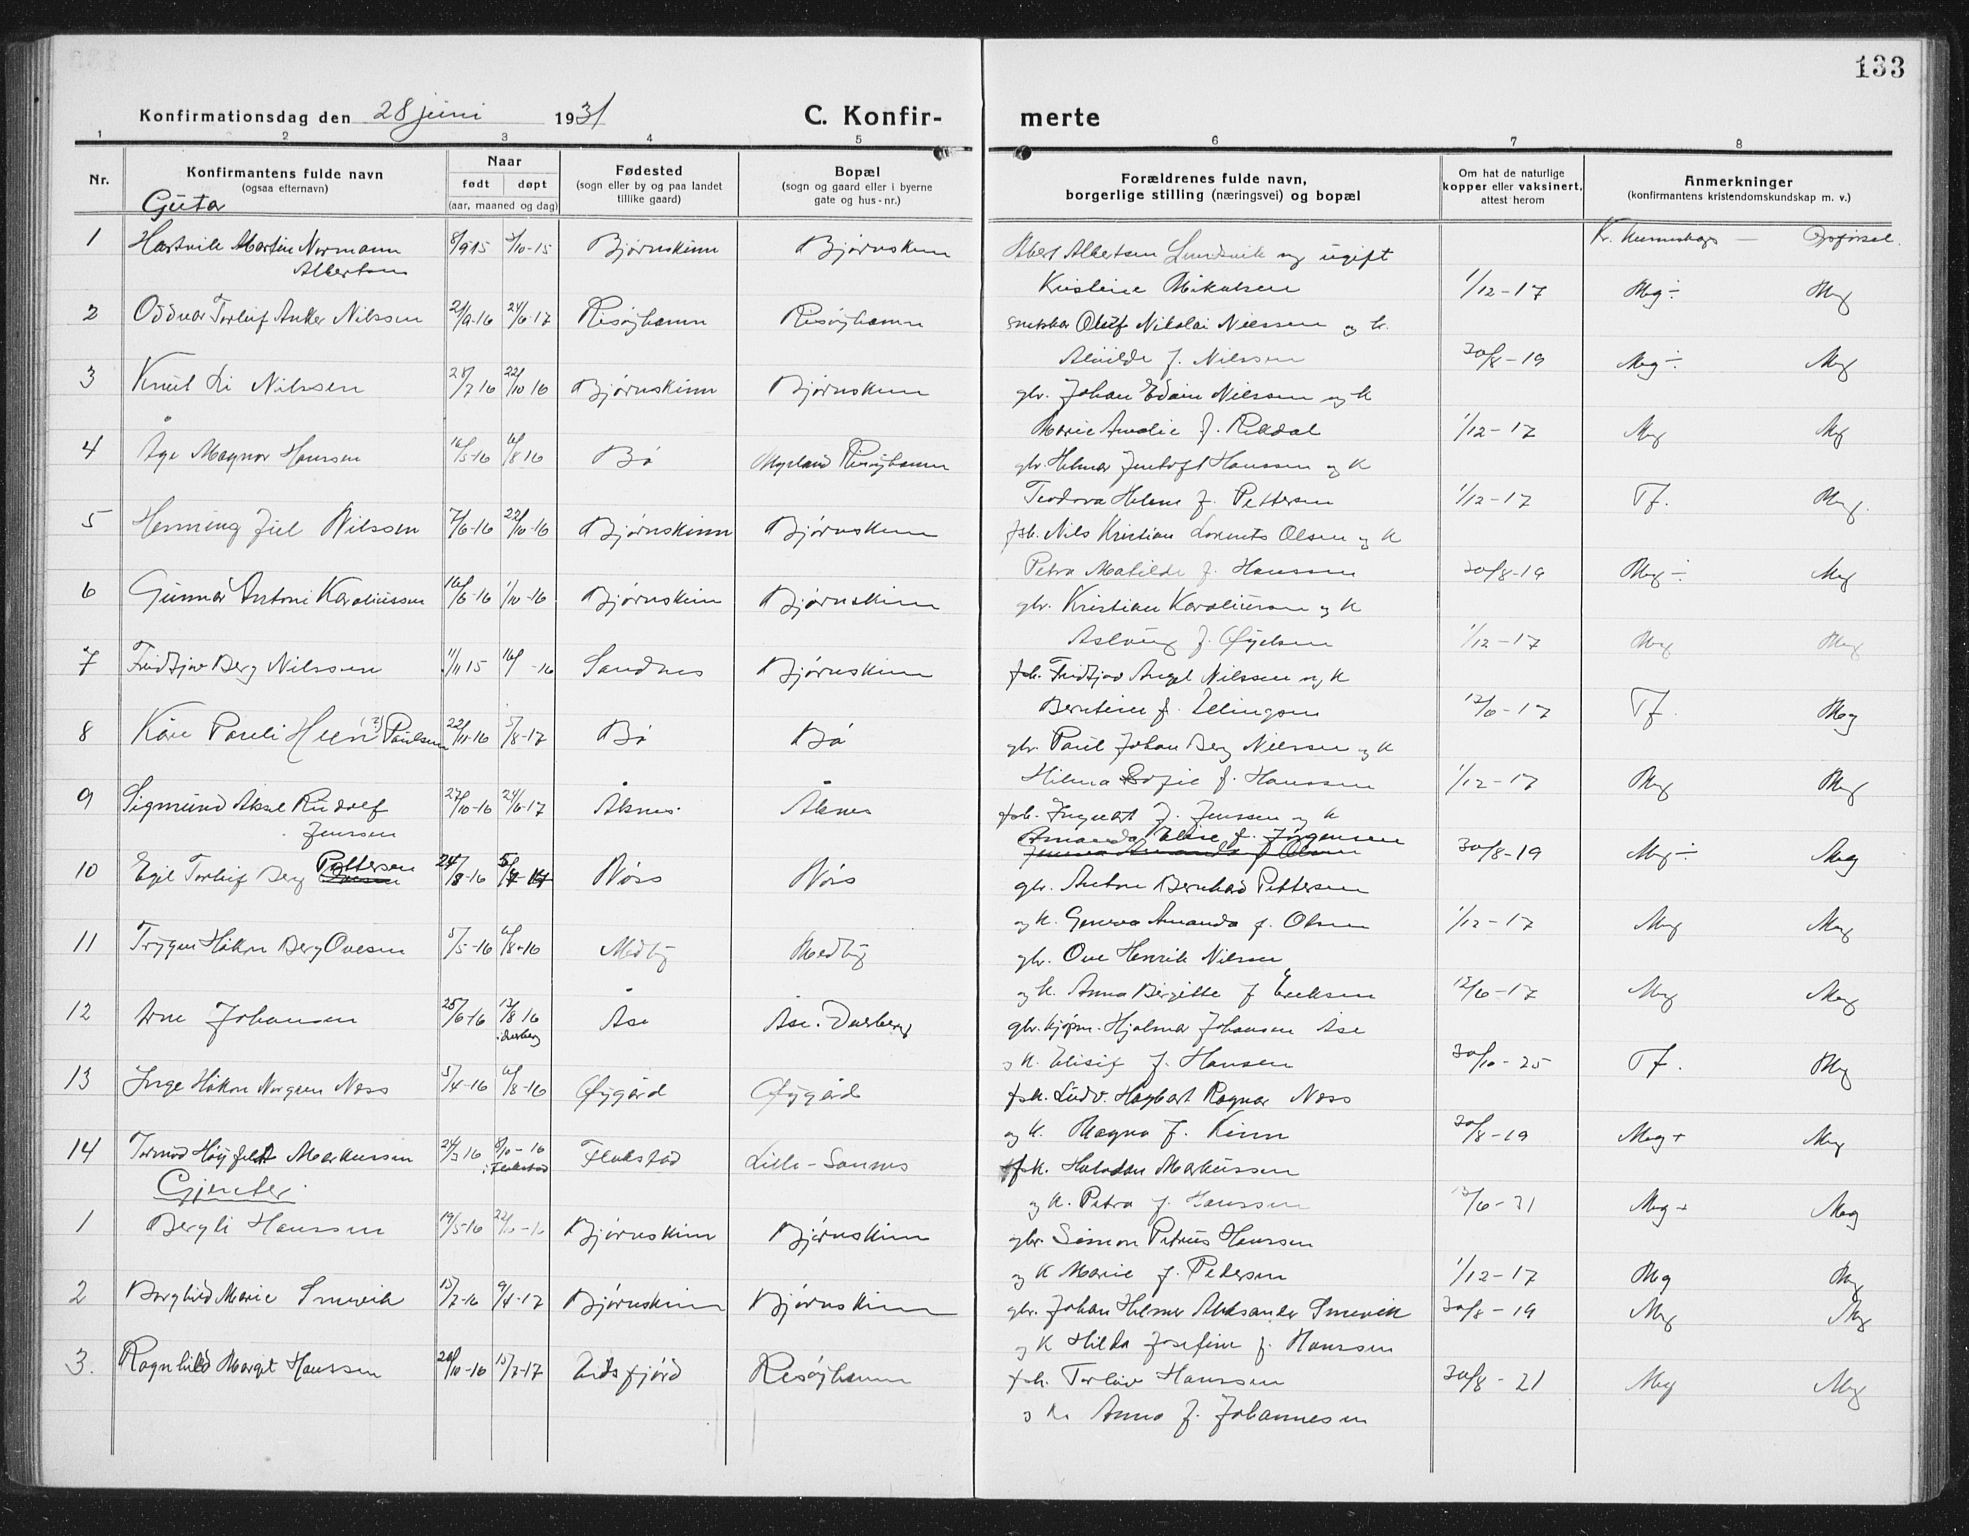 133
Konfirmationsdag den 28 juni 1931 C. Konfir- merte
1 2 3 4 5 6 7 8
Nr. Konfirmantens fulde navn (ogsaa efternavn) Naar født døpt (aar, maaned og dag) Fødested (sogn eller by og paa landet tillike gaard) Bopæl (sogn og gaard eller i byerne gate og hus-nr.) Forældrenes fulde navn, borgerlige stilling (næringsvei) og bopæl Om hat de naturlige kopper eller vaksinert, attest herom Anmerkninger (konfirmantens kristendomskundskap m. v.)
Guta
1 Hartvik Martin Normann 8/9 15 3/10-15 Bjørnskinn Bjørnskinn Albert Albertsen Lundsvik og ugift
Albertsen Kristine Mikalsen 1/12-17 Mg÷ Mg
2 Oddvar Torleif Anker Nilssen 21/9-16 24/6-17 Risøyhamn Risøyhamn snekker Oluf Nikolai Nilssen og k.
Alvilde f. Nilssen 30/8-19 Mg÷ Mg
3 Knut Li Nilssen 28/7 16 22/10 16 Bjørnskinn Bjørnskinn gbr. Johan Edvin Nilssen og k
Marie Amalie f. Rildal 1/12-17 Mg Mg
4 Åge Magnor Hanssen 16/5-16 6/8 16 Bø Myrland Risøyhamn gbr. Helmer Jentoft Hanssen og k
Teodora Helene f. Pettersen 1/12-17 Tf. Mg.
5 Henning Juel Nilssen 7/6-16 22/10-16 Bjørnskinn Bjørnskinn fsb. Nils Kristian Lorents Olsen og k
Petra Matilde f. Hanssen 30/8-19 Mg÷ Mg
6 Gunnar Antoni Karoliussen 16/6-16 1/10-16 Bjørnskinn Bjørnskinn gbr. Kristian Karoliussen og k
Aslaug f. Øyelsen 1/12-17 Mg Mg
7 Fridtjov Berg Nilssen 11/11 15 16/ -16 Sandnes Bjørnskinn fsk. Fridtjov Angel Nilssen og k
Berntine f. Ellingsen 12/6-17 Tf. Mg
8 Kåre Pauli Heen (?) Paulsen 22/11-16 5/8-17 Bø Bø gbr. Paul Johan Berg Nilssen og k
Hilma Sofie f. Hanssen 1/12-17 Mg Mg
9 Sigmund Aksel Rudolf 27/10-16 24/6-17 Åknes Åknes fsk. Ingvart J. Jenssen og k
Jenssen Amanda Elise f. Jørgensen 30/8-19 Mg÷ Mg
10 Egil Torleif Berg Pettersen 24/8-16 Nöss Nöss gbr. Anton Bernhard Pettersen
og k. Geneva Amanda f. Olsen 1/12-17 Mg Mg
11 Trygve Håkon Berg Ovesen 5/5-16 6/8-16 Medby Medby gbr. Ove Henrik Nilssen
og k. Anna Birgitte f Eriksen 12/6-17 Mg Mg
12 Arne Johansen 25/6-16 13/8 16 Åse Åse. Dverberg gbr. kjøpm. Hjalmar Johansen Åse
i Dverberg o k. Elisif f. Hansen 30/10-25 Tf. Mg
13 Inge Håkon Norgren Ness 5/4-16 6/8-16 Øygård Øygård fsk. Ludv. Hagbart Ragnar Ness
og k. Magna f. Kinn 30/8-19 Mg+ Mg
14 Tormod Høyfeldt Markussen 24/3 16 8/10-16 Flakstad Lille-Sannes fsk. Halvdan Markussen
i Flakstad
Gjenter. og k. Petra f. Hanssen 13/6-31 Mg+ Mg
1 Bergli Hanssen 19/5-16 22/10-16 Bjørnskinn Bjørnskinn gbr. Simon Petrus Hanssen
og k Marie f. Pedersen 1/12-17 Mg Mg
2 Borghild Marie Smevik 15/7-16 9/4-17 Bjørnskinn Bjørnskinn gbr. Johan Helmer Aleksander Smevik 30/8-19 Mg Mg
og k Hilda Josefine f. Hanssen
3. Ragnhild Margit Hanssen 26/10-16 15/7-17 Eidsfjord Risøyhamn fsk. Torleiv Hanssen 30/8-21 Mg Mg
o k. Anna f. Johannesen